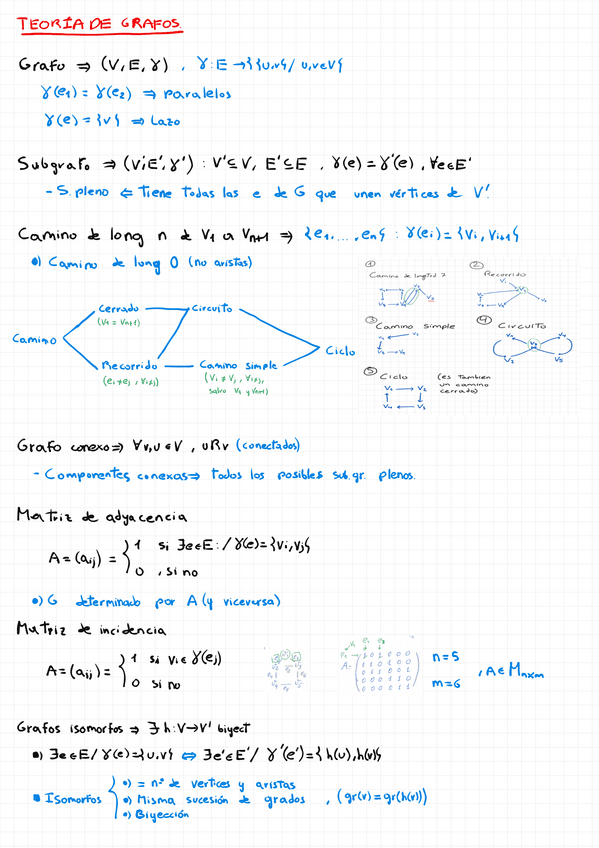 TEORÍA DE GRAFOS
Grafo ⇒ (V, E, γ) , γ: E → {{u,v} / u,v∈V}
γ(e₁) = γ(e₂) ⇒ paralelos
γ(e) = {v} ⇒ Lazo
Subgrafo ⇒ (V',E',γ') : V'⊆V, E'⊆E , γ(e) = γ'(e) , ∀e∈E'
- S. pleno ⇐ Tiene todas las e de G que unen vértices de V'.
Camino de long n de V₁ a Vₙ₊₁ ⇒ {e₁,...,eₙ} : γ(eᵢ) = {Vᵢ, Vᵢ₊₁}
•) Camino de long 0 (no aristas)
Camino
Cerrado
(V₁ = Vₙ₊₁)
Circuito
Recorrido
(eᵢ ≠ eⱼ , ∀i≠j)
Camino simple
(Vᵢ ≠ Vⱼ , ∀i≠j,
salvo V₁ y Vₙ₊₁)
Ciclo
① Camino de longitud 7
② Recorrido
③ Camino simple
④ Circuito
⑤ Ciclo (es también
un camino
cerrado)
V₁ → V₂
V₄ ← V₃
Grafo conexo ⇒ ∀v,u ∈ V , uRv (conectados)
- Componentes conexas ⇒ todos los posibles sub.gr. plenos.
Matriz de adyacencia
A = (aᵢⱼ) = { 1 si ∃e∈E : / γ(e) = {Vi, Vj}
0 , si no
•) G determinado por A (y viceversa)
Matriz de incidencia
A = (aᵢⱼ) = { 1 si Vi ∈ γ(eⱼ)
0 si no
n = 5
m = 6
, A ∈ Mₙₓₘ
Grafos isomorfos ⇒ ∃ h: V→V' biyect
•) ∃e∈E / γ(e) = {u,v} ⇔ ∃e'∈E' / γ'(e') = {h(u), h(v)}
▪ Isomorfos { •) = nº de vertices y aristas
•) Misma sucesión de grados , (gr(v) = gr(h(v)))
•) Biyección